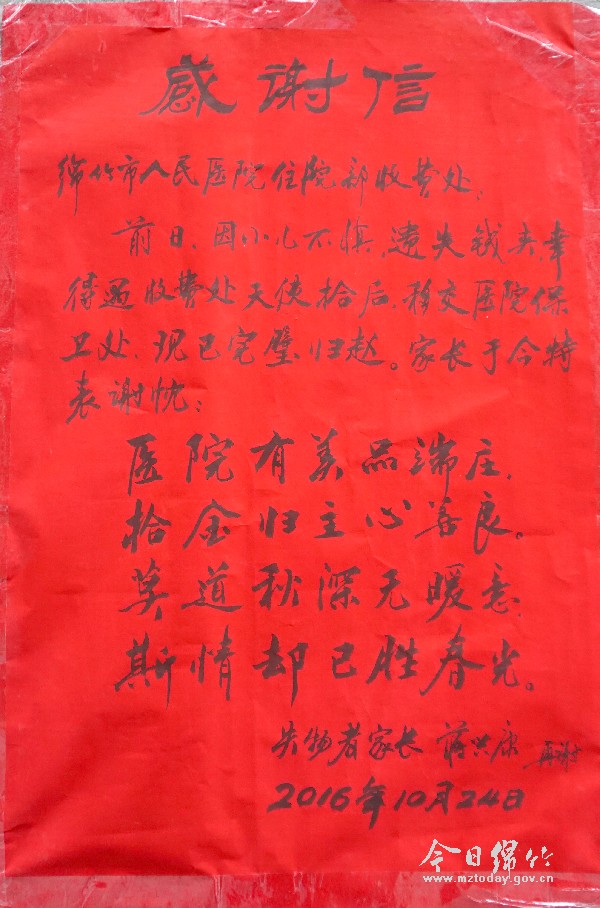 感谢信
绵竹市人民医院住院部收费处：
前日，因小儿不慎，遗失钱夹，幸
待遇收费处天使拾后，移交医院保
卫处，现已完璧归赵。家长于今特
表谢忱：
医院有美品端庄，
拾金归主心善良。
莫道秋深无暖意，
斯情却已胜春光。
失物者家长 蒋兴康 再谢
2016年10月24日
今日绵竹
www.mztoday.gov.cn